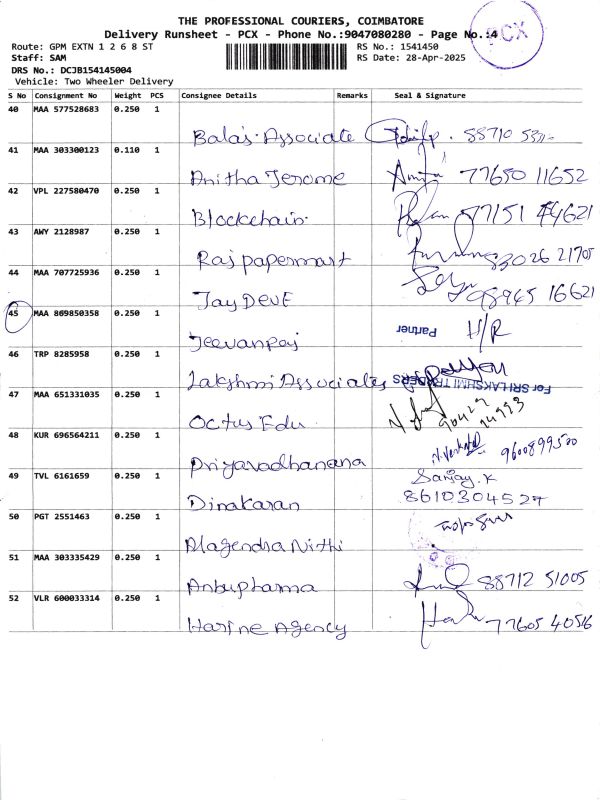 THE PROFESSIONAL COURIERS, COIMBATORE
Delivery Runsheet - PCX - Phone No.:9047080280 - Page No.:4
PCX
Route: GPM EXTN 1 2 6 8 ST
RS No.: 1541450
Staff: SAM
RS Date: 28-Apr-2025
DRS No.: DCJB154145004
Vehicle: Two Wheeler Delivery
S No Consignment No Weight PCS Consignee Details Remarks Seal & Signature
40 MAA 577528683 0.250 1
Balas Associate 88710
41 MAA 303300123 0.110 1
Anitha Jerome 77650 11652
42 VPL 227580470 0.250 1
Blockchain 97151 44621
43 AWY 2128987 0.250 1
Raj papermart 83026 21705
44 MAA 707725936 0.250 1
Jay DevE 98945 16621
45 MAA 869850358 1
Jeevanraj Partner H/R
46 TRP 8285958 0.250 1
Lakshmi Associates For SRI LAKSHMI TRADERS
47 MAA 651331035 0.250 1
Octus Edu
48 KUR 696564211 0.250 1
Priyavadhanana 9600899500
49 TVL 6161659 0.250 1
Sanjay. K
Dinakaran 8610304527
50 PGT 2551463 0.250 1
Alagendra Nithi
51 MAA 303335429 0.250 1
Anbupharma 88712 51005
52 VLR 600033314 0.250 1
Harine Agency 77605 40516